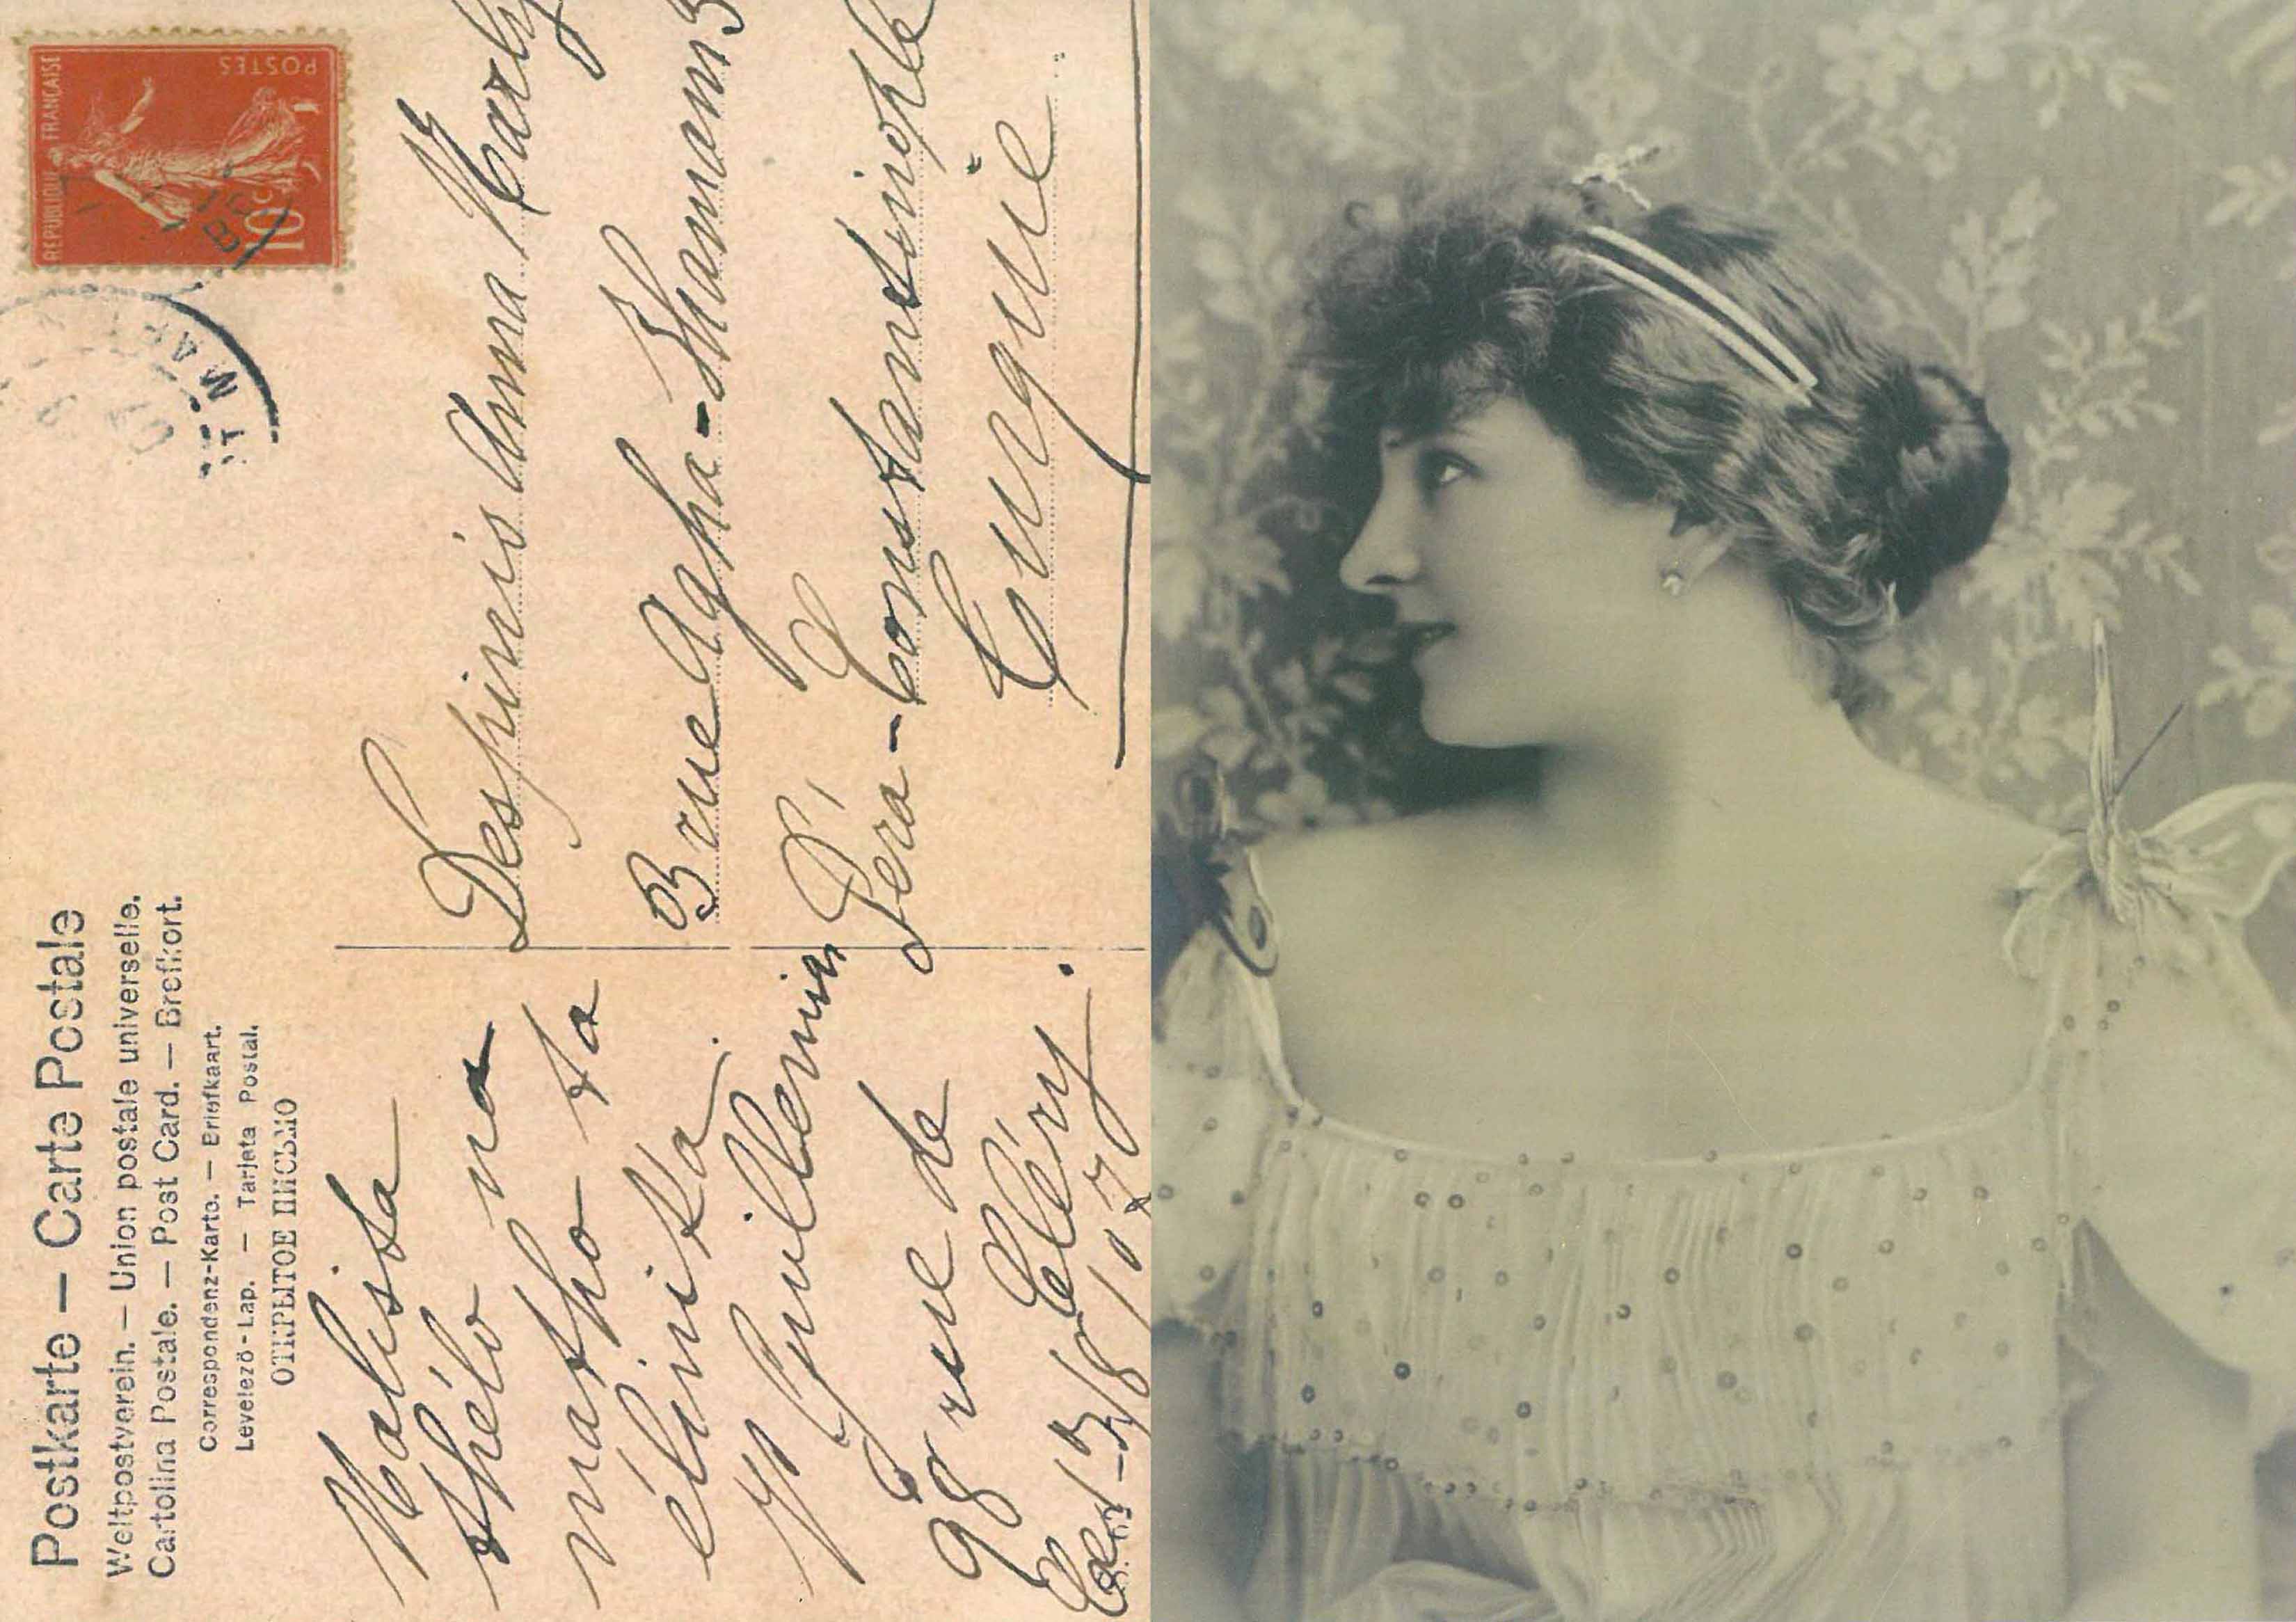 Postkarte – Carte Postale
Weltpostverein. – Union postale universelle.
Cartolina Postale. – Post Card. – Brefkort.
Correspondenz-Karte. – Briefkaart.
Levelező-Lap. – Tarjeta Postal.
ОТКРЫТОЕ ПИСЬМО
REPUBLIQUE FRANÇAISE
POSTES
10c
Malista
thélo na
matho ta
élinika
Guillemin
98 rue de
Cléry
Despinis Anna
Rue Agha-Hamam 3
Péra-Constantinople
Turquie